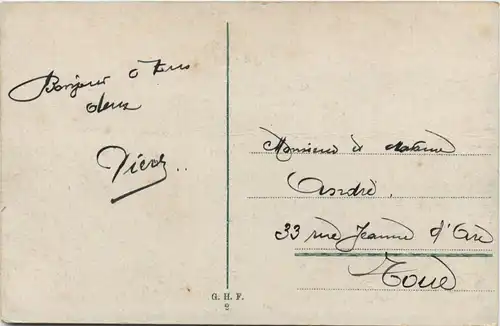 Bonjour à tous
deux
Monsieur et Madame
André
33 rue Jeanne d'Arc
Toul
G. H. F.
2